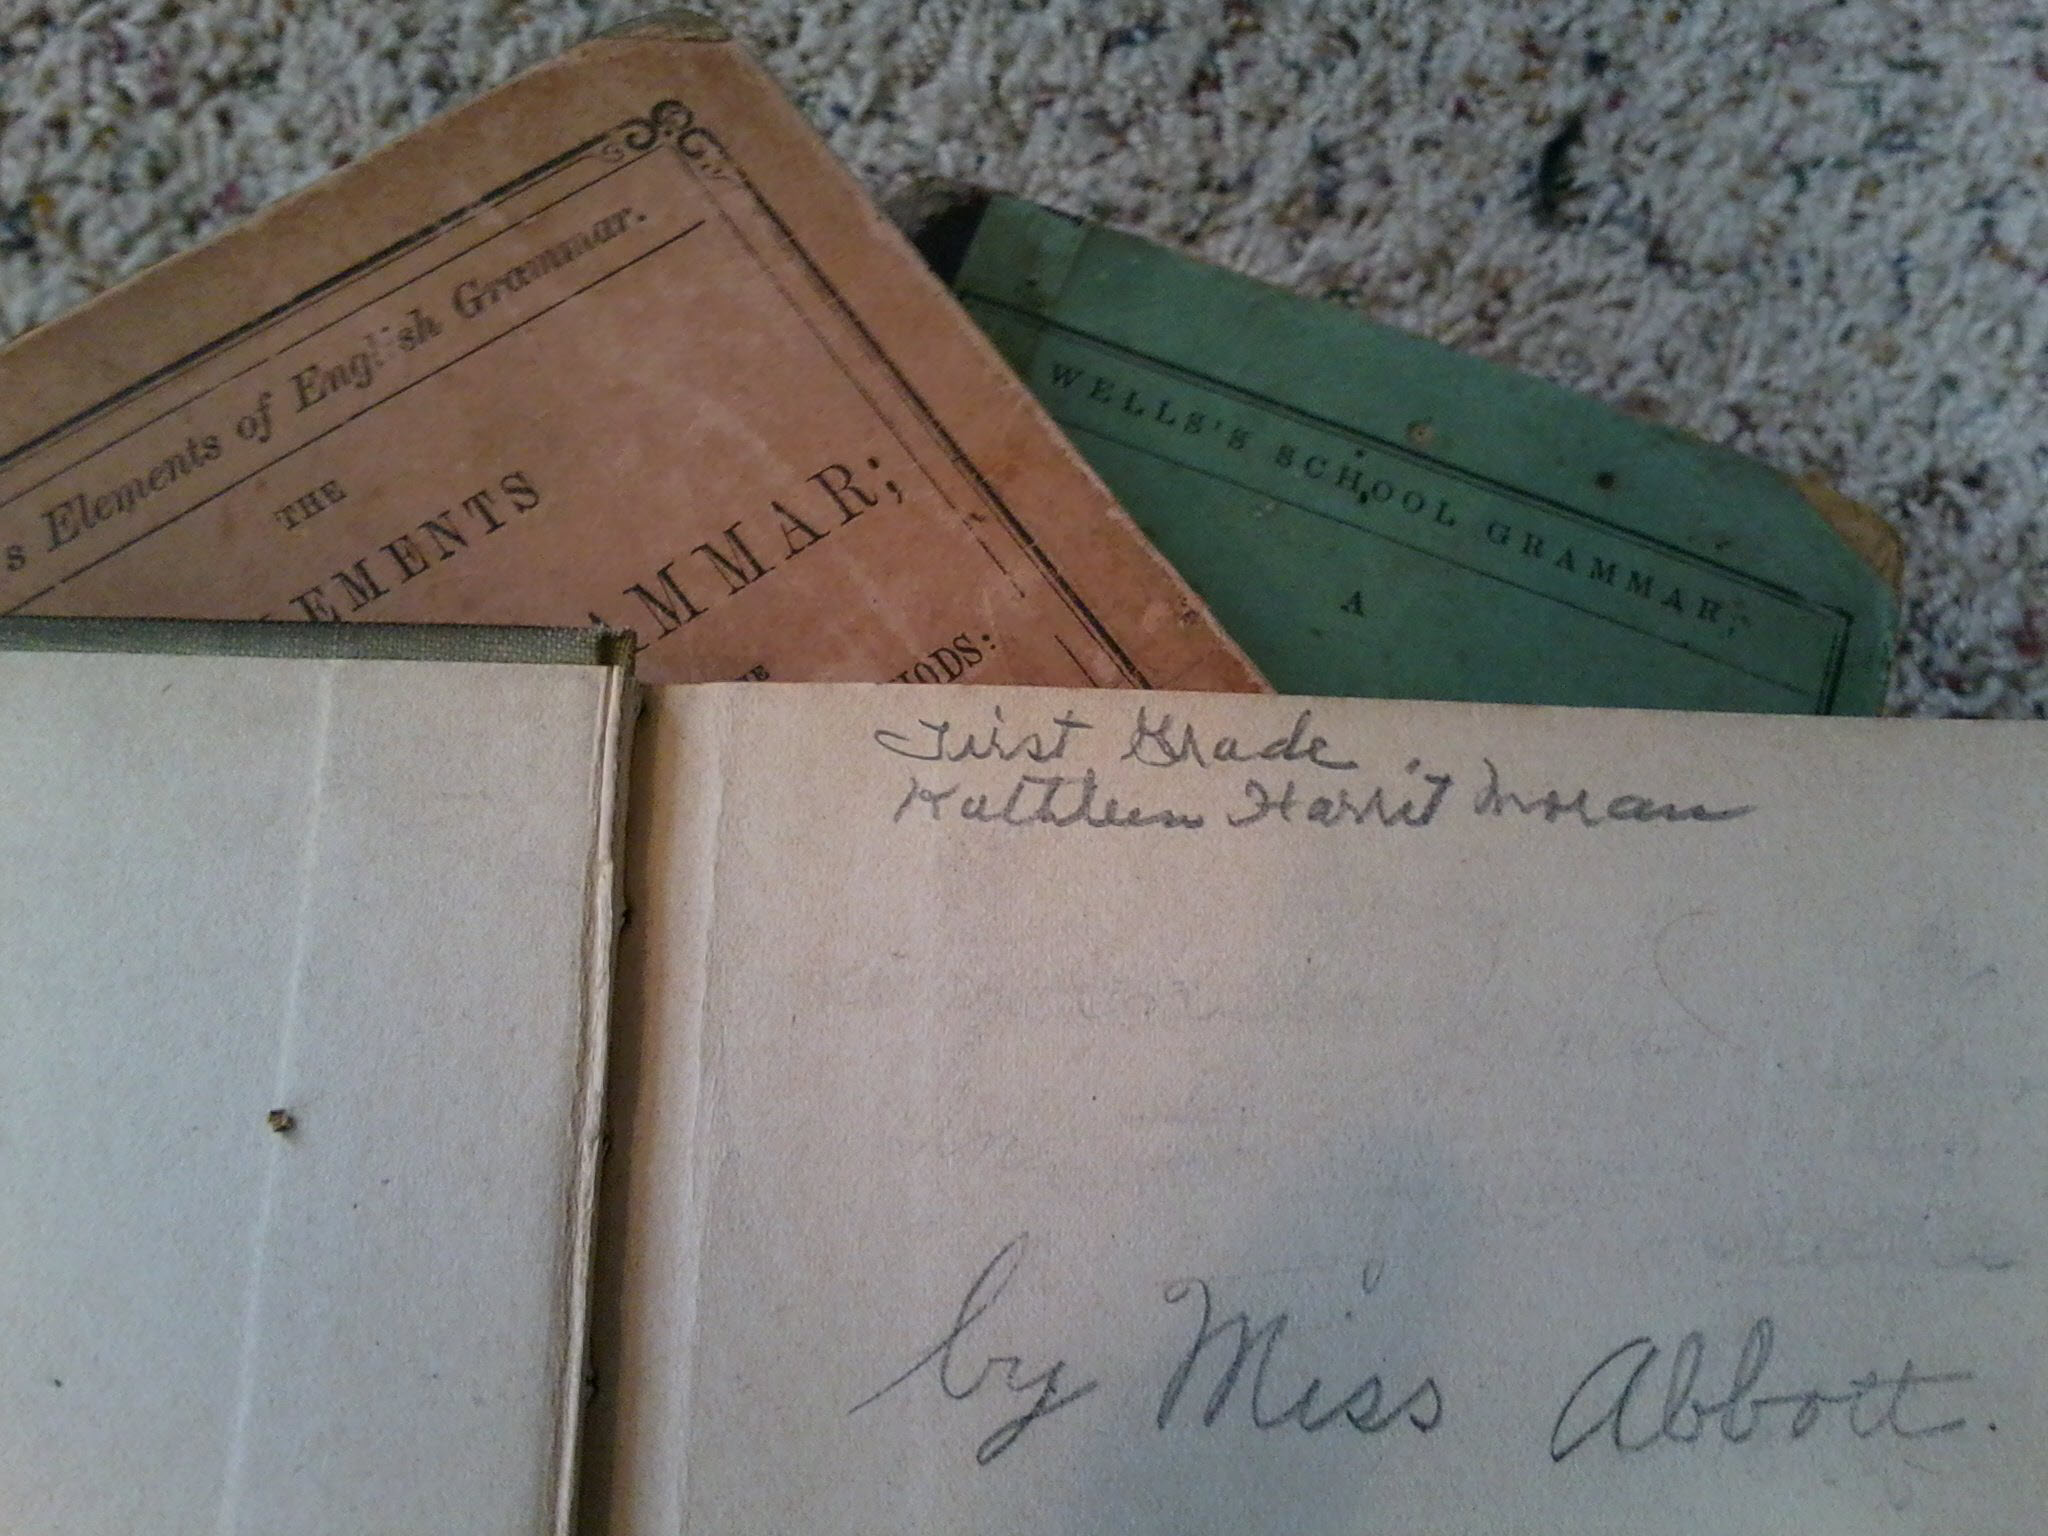 s Elements of English Grammar.
THE
LEMENTS
AMMAR;
HODS:
WELLS'S SCHOOL GRAMMAR;
A
First Grade
Kathleen Harrit Moran
by Miss Abbott.